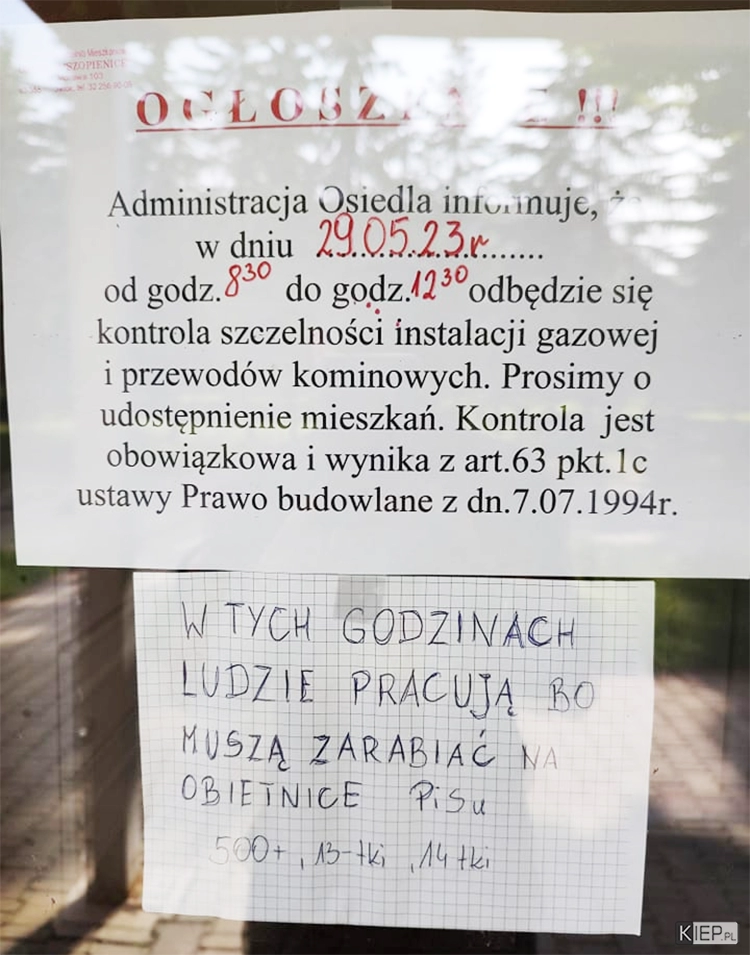 SZOPIENICE
OGŁOSZENIE !!!
Administracja Osiedla informuje, że
w dniu 29.05.23r
od godz. 8³⁰ do godz. 12³⁰ odbędzie się
kontrola szczelności instalacji gazowej
i przewodów kominowych. Prosimy o
udostępnienie mieszkań. Kontrola jest
obowiązkowa i wynika z art.63 pkt.1c
ustawy Prawo budowlane z dn.7.07.1994r.
W TYCH GODZINACH
LUDZIE PRACUJĄ BO
MUSZĄ ZARABIAĆ NA
OBIETNICE PiSu
500+, 13-tki, 14tki
KIEP.PL